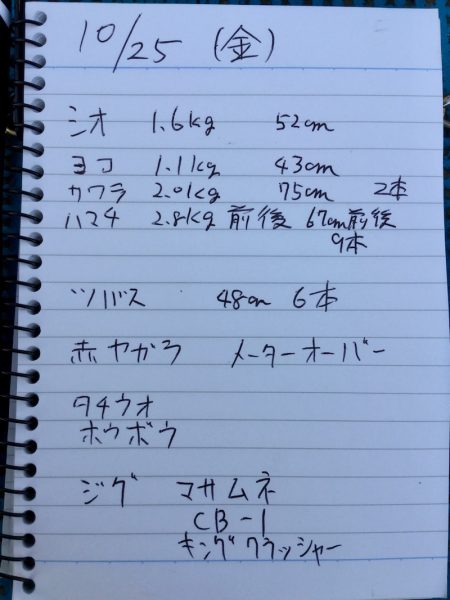 10/25 (金)
シオ 1.6kg 52cm
ヨコ 1.11kg 43cm
カワラ 2.01kg 75cm 2本
ハマチ 2.8kg前後 67cm前後
9本
ツバス 48cm 6本
赤ヤガラ メーターオーバー
タチウオ
ホウボウ
ジグ マサムネ
CB-1
キングクラッシャー